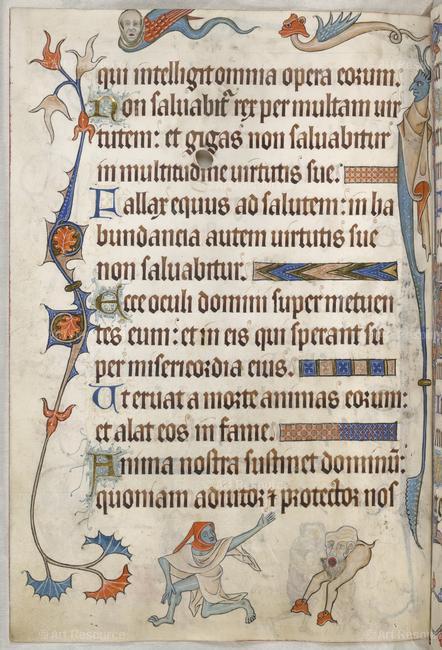 qui intelligit omnia opera eorum.
Non saluabit᷑ rex per multam uir
tutem: et gigas non saluabitur
in multitudine uirtutis sue.
Fallax equus ad salutem: in ha
bundancia autem uirtutis sue
non saluabitur.
Ecce oculi domini super metuen
tes eum: et in eis qui sperant su
per misericordia eius.
Ut eruat a morte animas eorum:
et alat eos in fame.
Anima nostra sustinet dominū:
quoniam adiutor ⁊ protector nos
© Art Resource
© Art Resource